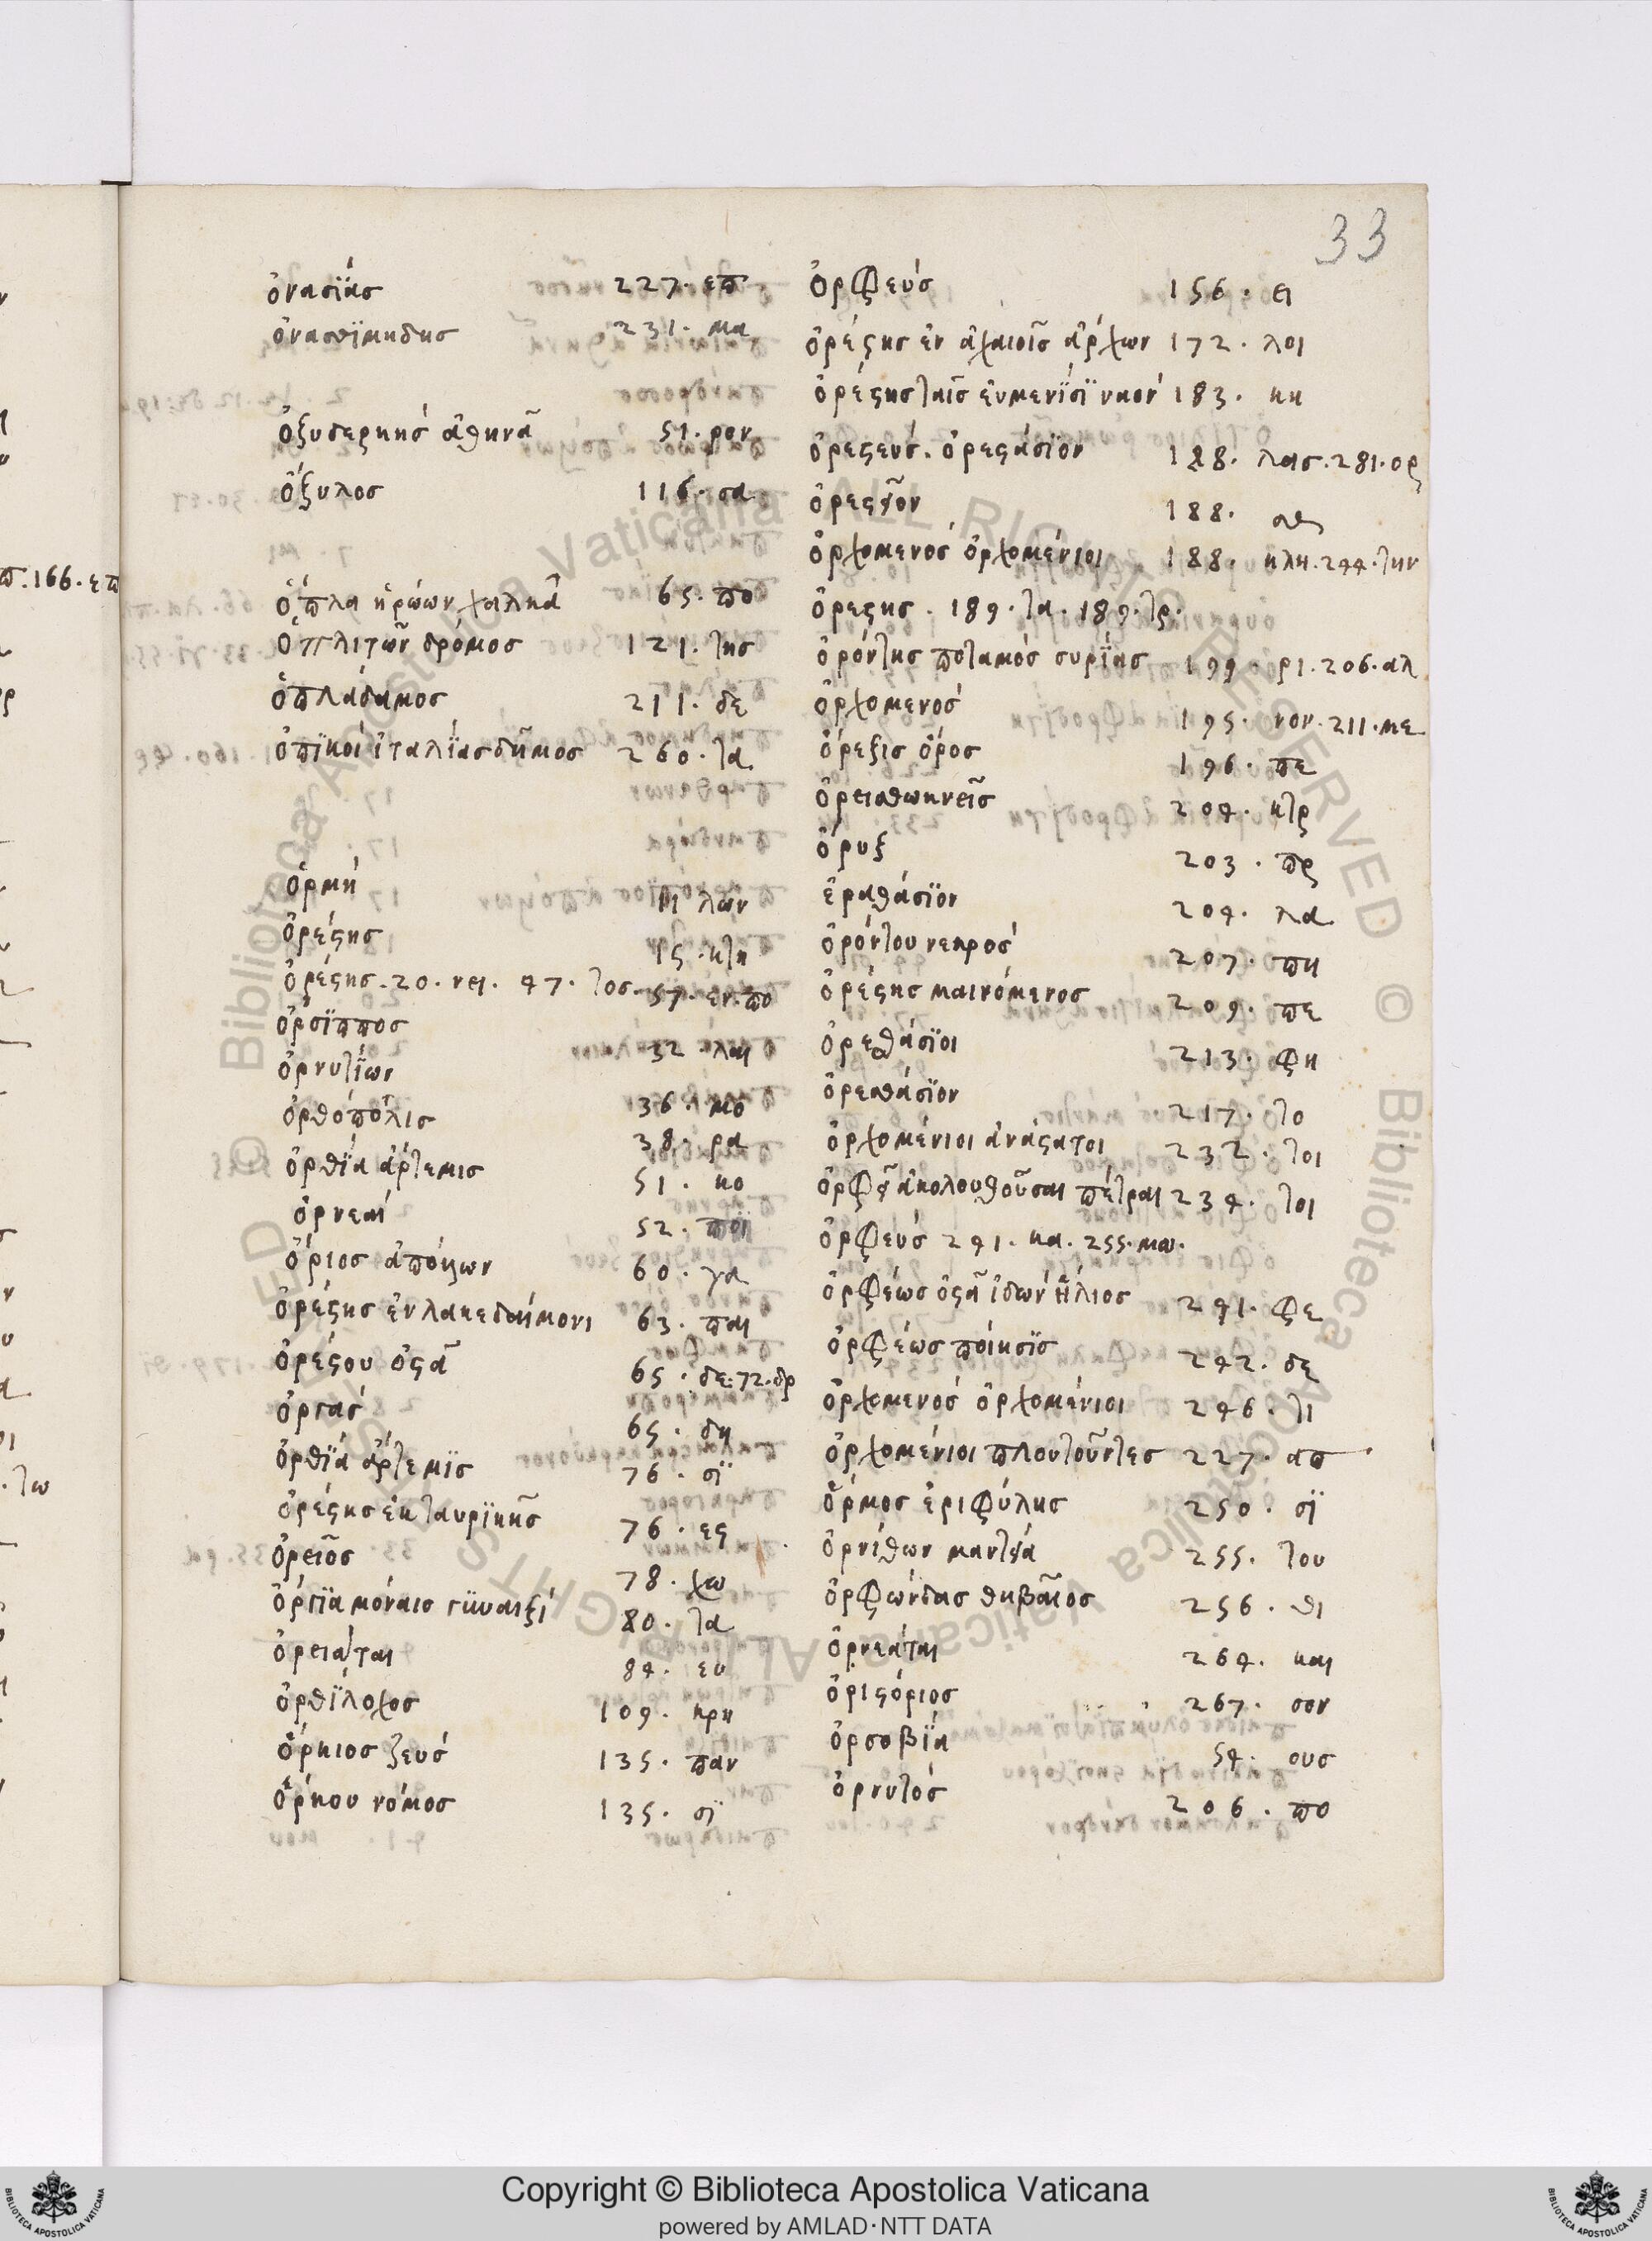 33
ὀνασϊάσ 227. επ
ὀνασϊμηδησ 231. μα
ὀξυδερκησ ἀθηνᾶ 51. ρον
ὄξυλοσ 116. σα
ὁπλα ἡρώων χαλκᾶ 65. πο
ὁπλιτῶν δρόμοσ 121. τησ
ὁπλάδαμοσ 211. δε
ὀπϊκοί ἰταλίασ δῆμοσ 260. τα
ὁρμή 11 λων
ὀρέϛησ 15. κτη
ὀρέϛησ. 20. νει. 47. τοσ. 57. εν. πο
ὀρσϊπποσ 32. λαι
ὀρνυτϊων 36. μο
ὀρθόπολισ 38. ρα
ὀρθϊα ἀρτεμισ 51. κο
ὀρνεαί 52. ποϊ
ὅριοσ ἀπόλλων 60. γα
ὀρέϛησ ἐν λακεδαίμονι 63. παι
ὀρέϛου ὀϛᾶ 65. δε. 72. δρ
ὀργάσ 65. δη
ὀρθϊα ἀρτεμϊσ 76. σϊ
ὀρέϛησ ἐκ ταυρϊκῆσ 76. εϛ
ὀρειοσ 78. χω
ὀργϊα μόναισ γϋναιξί 80. τα
ὀρειάται 84. ευ
ὀρθϊλοχοσ 109. κρη
ὁρκιοσ ζευσ 135. παν
ὁρκου νόμοσ 135. σϊ
ὀρφευσ 156. ει
ὀρέϛησ ἐν ἀχαιοῖσ ἀρχων 172. λοι
ὀρέϛησ ταῖσ ἐυμενϊσϊ ναον 183. κη
ὀρεϛευσ. ὀρεϛάσϊον 188. λασ. 281. ορ
188.
ὀρχομενοσ ὀρχομένιοι 188. κλη. 244. την
ὀρεϛησ. 189. τα. 189. τρ.
ὀρόντησ ποταμόσ συρϊασ 199. ρι. 206. αλ
ὀρχομενοσ 195. νον. 211. με
ὀρεξισ ὄροσ 196. πε
204. κτρ
ὀρυξ 203. πρ
204. λα
ὀρόντου νεκροσ 207. πη
ὀρέϛησ μαινόμενοσ 209. πε
ὀρεθάσϊοι 213. φη
ὀρεσθάσϊον 217. το
ὀρχομένιοι ἀνάϛατοι 232. τοι
ὀρφεῖ ἀκολουθοῦσαι πέτραι 234. τοι
ὀρφευσ 241. κα. 255. μω.
ὀρφέωσ ὀϛᾶ ἰδων ἥλιοσ 241. φε
ὀρφέωσ ποίησϊσ 242. δε
ὀρχομενοσ ὀρχομένιοι 246. τι
ὀρχομένιοι πλουτοῦντεσ 227. απ
ὅρμοσ ἐριφύλησ 250. σϊ
ὀρνίθων μαντεία 255. του
ὀρφώνδασ θηβαῖοσ 256. θι
ὀρνεάται 264. και
ὀριϛόριοσ 267. σον
ὀρσοβϊα 54. ουσ
ὀρνυτόσ 206. πο
π. 166. επ
Copyright © Biblioteca Apostolica Vaticana
powered by AMLAD·NTT DATA